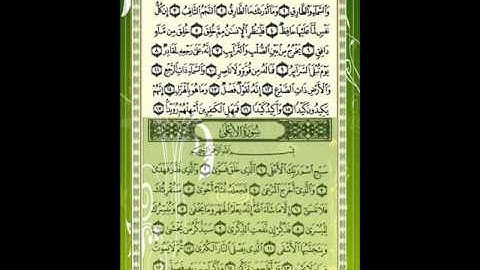 وَالسَّمَاءِ وَالطَّارِقِ ١ وَمَا أَدْرَاكَ مَا الطَّارِقُ ٢ النَّجْمُ الثَّاقِبُ ٣ إِن كُلُّ
نَفْسٍ لَّمَّا عَلَيْهَا حَافِظٌ ٤ فَلْيَنظُرِ الْإِنسَانُ مِمَّ خُلِقَ ٥ خُلِقَ مِن مَّاءٍ
دَافِقٍ ٦ يَخْرُجُ مِن بَيْنِ الصُّلْبِ وَالتَّرَائِبِ ٧ إِنَّهُ عَلَىٰ رَجْعِهِ لَقَادِرٌ ٨
يَوْمَ تُبْلَى السَّرَائِرُ ٩ فَمَا لَهُ مِن قُوَّةٍ وَلَا نَاصِرٍ ١٠ وَالسَّمَاءِ ذَاتِ الرَّجْعِ ١١
وَالْأَرْضِ ذَاتِ الصَّدْعِ ١٢ إِنَّهُ لَقَوْلٌ فَصْلٌ ١٣ وَمَا هُوَ بِالْهَزْلِ ١٤ إِنَّهُمْ
يَكِيدُونَ كَيْدًا ١٥ وَأَكِيدُ كَيْدًا ١٦ فَمَهِّلِ الْكَافِرِينَ أَمْهِلْهُمْ رُوَيْدًا ١٧
سُورَةُ الْأَعْلَىٰ
بِسْمِ اللَّهِ الرَّحْمَٰنِ الرَّحِيمِ
سَبِّحِ اسْمَ رَبِّكَ الْأَعْلَى ١ الَّذِي خَلَقَ فَسَوَّىٰ ٢ وَالَّذِي قَدَّرَ فَهَدَىٰ
٣ وَالَّذِي أَخْرَجَ الْمَرْعَىٰ ٤ فَجَعَلَهُ غُثَاءً أَحْوَىٰ ٥ سَنُقْرِئُكَ
فَلَا تَنسَىٰ ٦ إِلَّا مَا شَاءَ اللَّهُ إِنَّهُ يَعْلَمُ الْجَهْرَ وَمَا يَخْفَىٰ ٧ وَنُيَسِّرُكَ
لِلْيُسْرَىٰ ٨ فَذَكِّرْ إِن نَّفَعَتِ الذِّكْرَىٰ ٩ سَيَذَّكَّرُ مَن يَخْشَىٰ ١٠
وَيَتَجَنَّبُهَا الْأَشْقَى ١١ الَّذِي يَصْلَى النَّارَ الْكُبْرَىٰ ١٢ ثُمَّ لَا يَمُوتُ